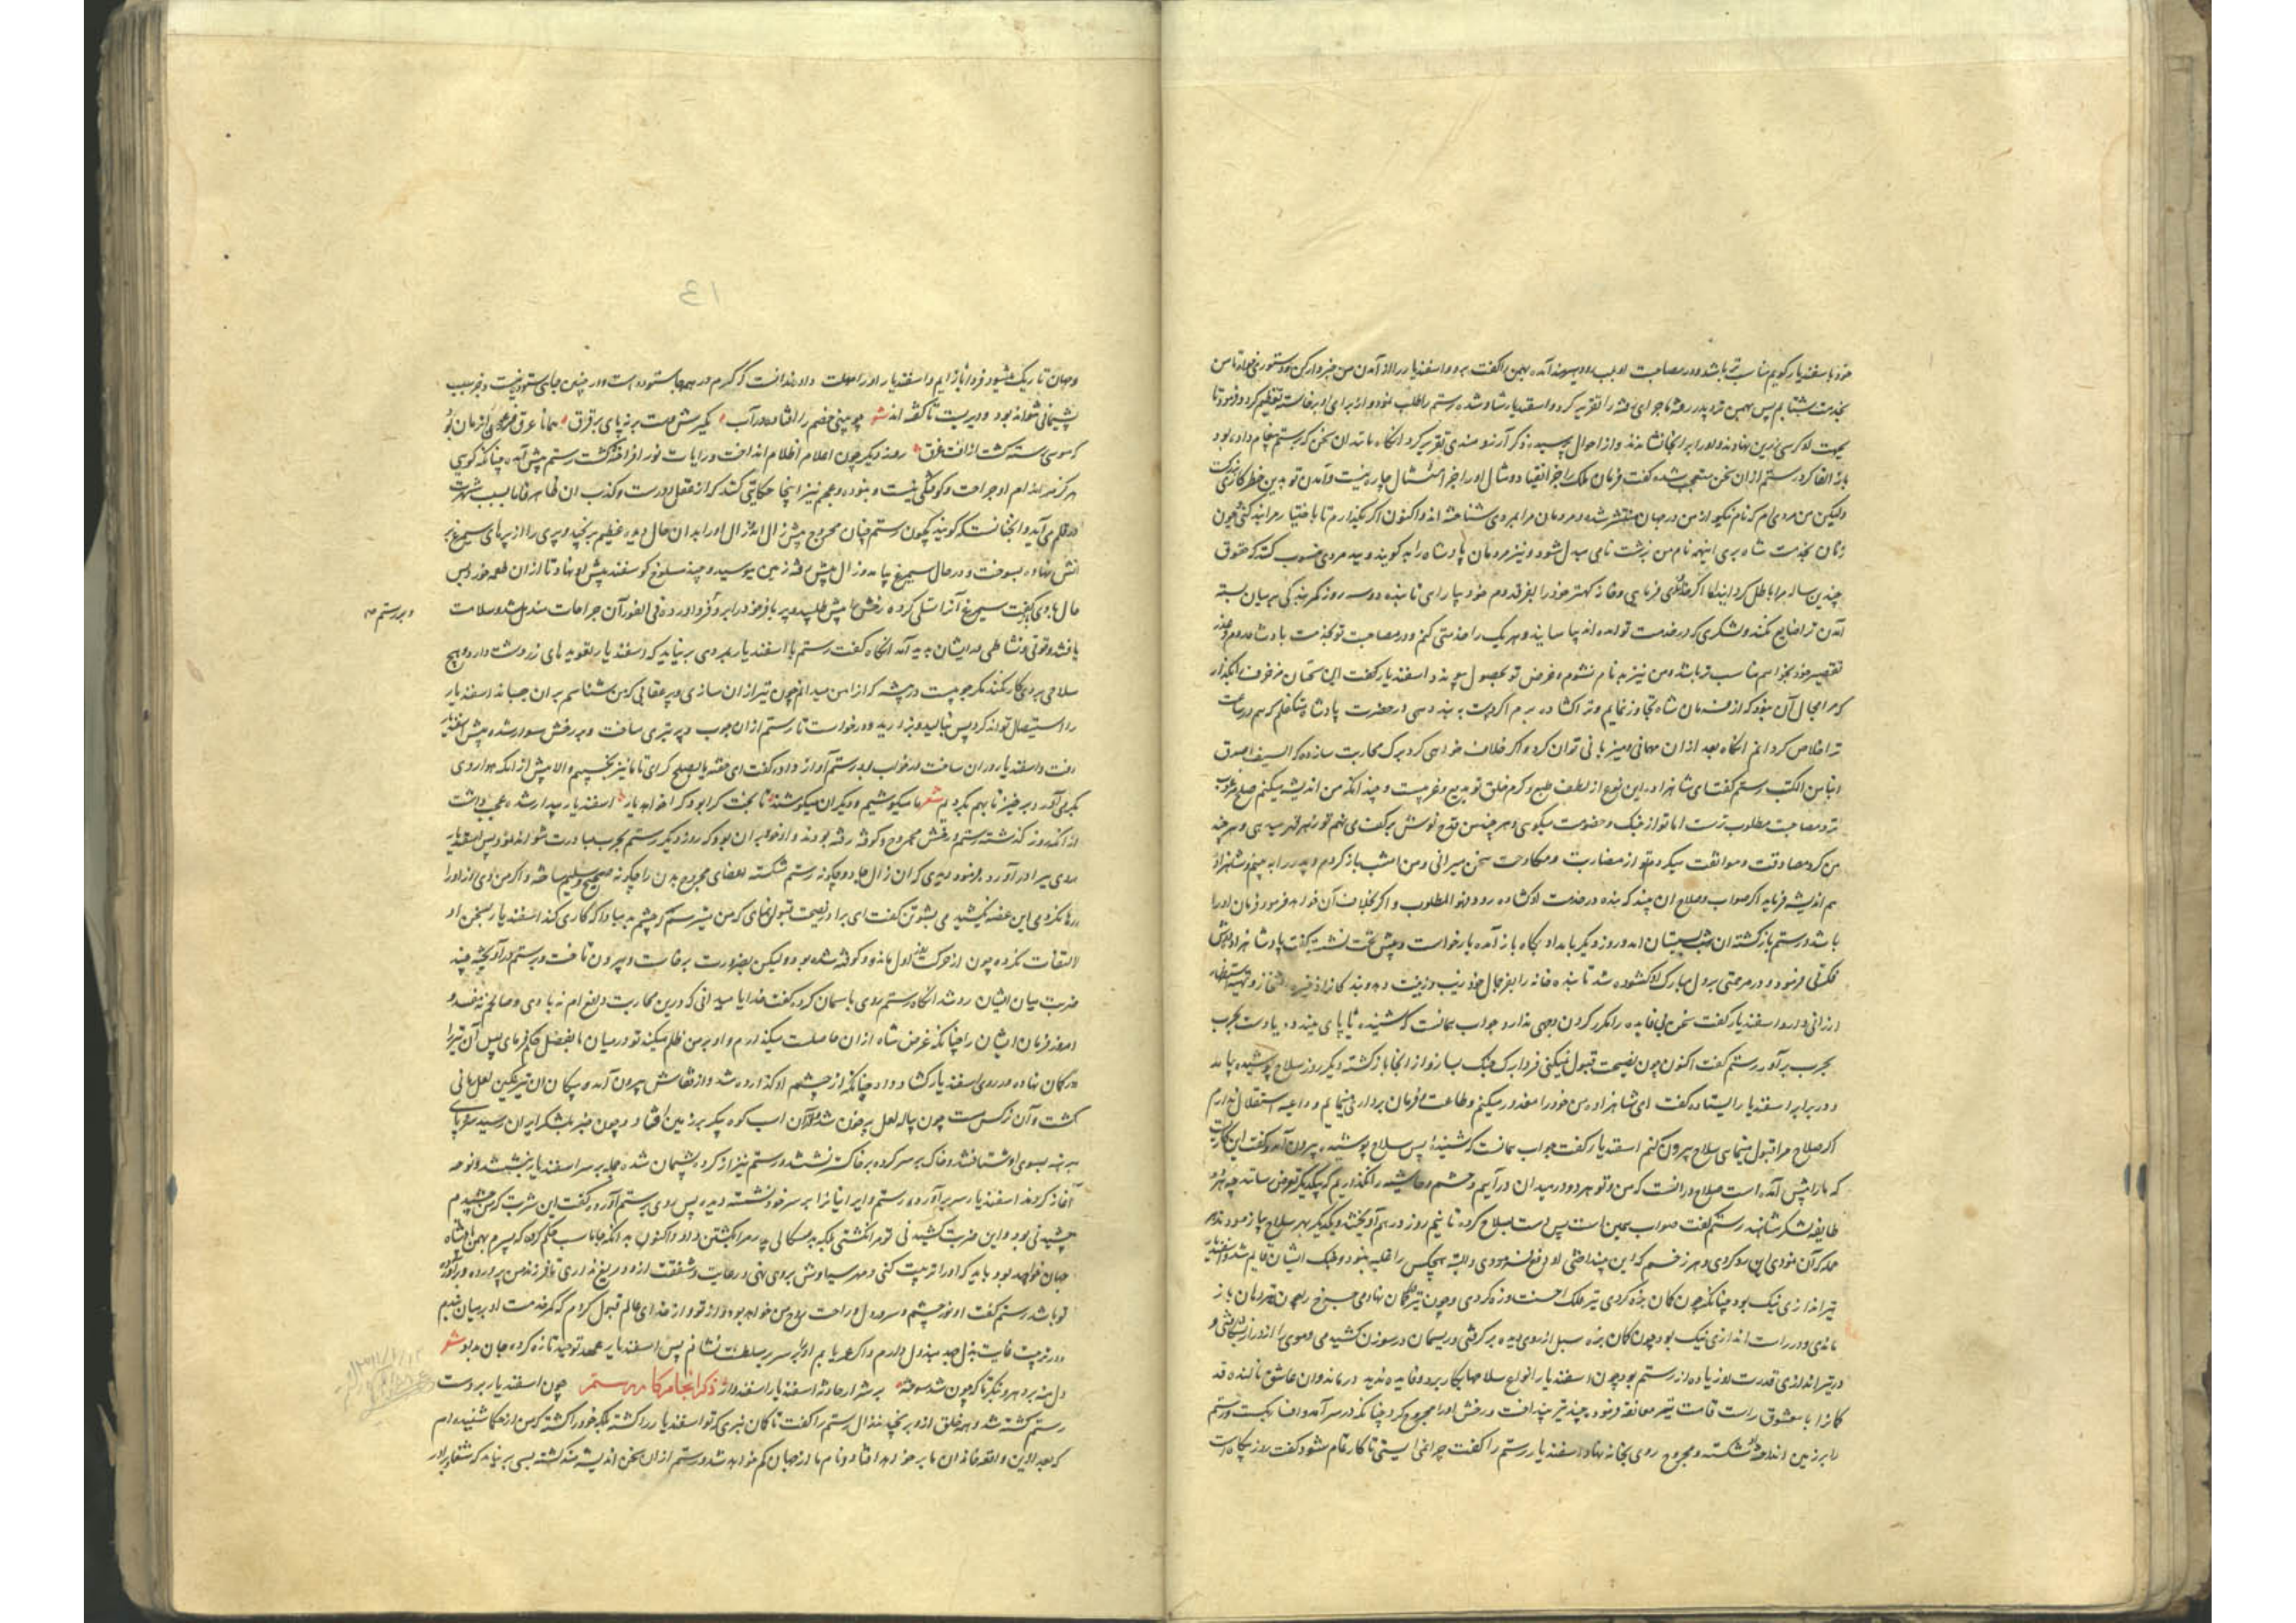 خود با سفندیار کویم مناسب تر باشد و در مصاحبت او
بخدمت شتابم پس بهمن نزد پدر رفته ماجرای رفته را تقریر کرد و اسفندیار شاد شده رستم را طلب نمود و از برای او برخاسته تعظیم کرد و فرمود تا
بجهت او کرسی زرین بنهادند و او را بر انجا نشاندند و از احوال پرسیده ذکر آرزومندی تقریر کرد انکاه باز بدان سخن که برستم پیغام داده بود
القا کرد رستم از ان سخن متعجب شده کفت فرمان ملک را جز انقیاد و مثال او را جز امتثال چاره نیست و آمدن تو بدین خطر
ولیکن من مردی ام که نام نیکو از من در جهان منتشر شده و مردمان مرا بمردی شناخته اند و اکنون اکر بکذارم تا باختیار مرا بند کنی چون
زنان بخدمت شاه بری اینهمه نام من بزشت نامی مبدل شود و نیز مردمان پادشاه را بد کویند و بیدمردی منسوب کنند که حقوق
چندین ساله مرا باطل کردانید اما اکر فرمایی و خانه کهتر خود را بفر قدوم خود بیارای تا بنده دو سه روز کمر بندکی بر میان بسته
آمدن ترا ضایع نکند و لشکری که در خدمت تو آمده اند بیاسایند و هر یک را خدمتی کنم و در مصاحبت تو بخدمت پادشاه روم و عذر
تقصیر خود بخواهم مناسب تر باشد و من نیز بدنام نشوم و غرض تو بحصول پیوندد اسفندیار کفت این سخنان مزخرف را بکذار
که مرا مجال آن نبود که از فرمان شاه تجاوز نمایم و ترا کشاده برم اکر دست به بند دهی در حضرت پادشاه ضمانم که هم در ساعت
ترا خلاص کردانم انکاه بعد از ان مهمانی و میزبانی توان کرد و اکر خلاف خواهی کرد برک محاربت سازده که السیف اصدق
انباء من الکتب رستم کفت ای شاهزاده این نوع از لطف طبع و کرم خلق تو بدیع و غریبست و چندانکه من اندیشه میکنم صلح مرغوب
تر و مصاحبت مطلوب تر است اما تو از جنک و خصومت میکوی و هر چند من قدح نوش بر کف می نهم تو زهر قهر میدهی و هر چند
من کرد مصادقت و موافقت میکردم تو از مضاربت و مکاوحت سخن میرانی و من امشب باز کردم و پدر را به بینم و شاهزاده
هم اندیشه فرماید اکر صواب و صلاح ان بیند که بنده در خدمت او کشاده رود و نهو المطلوب و اکر بخلاف آن خواهد فرمود فرمان او را
باشد رستم بازکشته ان شب بسیستان امد و روز دیکر بامداد بکاه باز آمده بار خواست و پیش تخت نشست کفت پادشاهزاده دوش
فکرتی فرمود و در مرحمتی بر دل مبارک او کشوده شد تا بنده خانه را بفر جمال خود زیب و زینت دهد
ارزانی دارد اسفندیار کفت سخن بی فایده را مکرر کردن وجهی ندارد جواب همانست که شنیده یا پای به بند ده یا دست بحرب
بحرب برآور رستم کفت اکنون چون نصیحت قبول نمیکنی فردا برک جنک بساز و از انجا بازکشته دیکر روز سلاح پوشیده بیامد
و در برابر اسفندیار ایستاده کفت ای شاهزاده من خود را معذور میکنم و طاعت و فرمان برداری مینمایم و داعیه استقلال ندارم
اکر صلاح مرا قبول مینمایی سلاح بیرون کنم اسفندیار کفت جواب همانست که شنیدهٔ پس سلاح پوشیده بیرون آمد و کفت این
که ما را پیش آمده است صلاح در انست که من و تو هر دو در میدان درآییم و حشم و حاشیه را نکذاریم که بیکدیکر تعرض رسانند
طایفه لشکر شاهند رستم کفت صواب همین است پس دست بسلاح کرده تا نیم روز در هم آویختند و بیکدیکر بهر سلاح بیازمودند
حمله کران نمودی این رد کردی و هر زخم که این بینداختی او دفع نمودی و البته هیچکس را غلبه نبود و جنک ایشان قایم شد و اسفندیار
تیراندازی نیک بود چنانکه چون کمان بزه کردی تیر فلک احسنت و زه کردی و چون تیر در کمان نهادی
ماندی و در راست اندازی نیک بود چون کمان بزه
در تیراندازی قدرت او زیاده از رستم بود چون اسفندیار انواع سلاحها بکار برد و فایده ندید درماند و ان عاشق نالنده قد
کمان را با معشوق راست قامت تیر معانقه فرمود و چند تیر بینداخت و رخش او را مجروح کرد چنانکه در سر آمد و افتاد
را بر زمین انداخته شکسته و مجروح روی بخانه نهاد اسفندیار رستم را کفت چرا نمی ایستی تا کار تمام شود کفت روز بیکاه است
13
و جهان تاریک میشود فردا باز ایم و اسفندیار او را مهلت داد و ندانست که کرم در همه جا ستوده است و در چنین جای ستوده نیست
پشیمانی نتواند بود و دیریست تا کفته اند شعر چو بینی خصم را افتاده در آب مکیرش دست بر نه پای بر فرق
کر موسی رسته کشت از افت غرق روز دیکر چون اعلام اظلام انداخت و رایات نور افراخته کشت رستم پیش آمد چنانکه کویی
هرکز بر اندام او جراحت و کوفتکی نیست و نبوده و عجم نیز اینجا حکایتی کنند که از عقل دورست و کذب ان ظاهر فاما بسبب شهرت
در قلم می آید و انچنانست که کویند چون رستم چنان مجروح پیش زال امد زال او را بدان حال دید عظیم برنجید و پری را از پرهای سیمرغ بر
اتش نهاده بسوخت و در حال سیمرغ بیامد و زال پیش رفته زمین ببوسید و چند مسلوخ کوسفند پیش او نهاد تا از ان طعمه خورد پس
حال با وی کفت سیمرغ آنرا تسلی کرده رخش را پیش طلبید و پر با فر خود را برو فرود آورد و فی الفور آن جراحات مندمل شد و سلامت
و بر رستم صح
یافتند و قوتی و نشاطی در ایشان پدید آمد انکاه کفت رستم با اسفندیار بمردی بر نیاید که اسفندیار تعویذهای زردشت دارد و هیچ
سلاحی بر وی کار نکند مکر چوبیست در بیشه کز از امن میدانم چون تیر از ان سازی و پر عقابی که من شناسم بر ان چسپاند اسفندیار
را استیصال تواند کرد پس بنالید و بزارید و درخواست تا رستم از ان چوب و پر تیری ساخت و بر رخش سوار شده پیش اسفندیار
رفت و اسفندیار در ان ساعت در خواب بود رستم آواز داد کفت ای خفته یا بصلح کرای تا ما نیز بخسپیم و الا پیش از انکه هوا روی
بکرمی آرد برخیز تا بهم بکردیم شعر ما میکوشیم و دیکران میکوشند تا بخت کرا بود کرا خواهد یار اسفندیار بیدار شده عجب داشت
از انکه روز کذشته رستم و رخش مجروح و کوفته رفته بودند و او خود بران بود که روز دیکر رستم بحرب مبادرت نتواند نمود پس اسفندیار
روی ببرادر آورد و فرمود دیدی که ان زال جادو چکونه رستم شکسته اعضای مجروح بدن را چکونه صحیح و سلیم ساخته و اکر من دی او را
رها نکردمی این غصه نکشیدمی بشوتن کفت ای برادر نصیحت قبول نمای که من میترسم کز چشم بد مبادا که کاری کند اسفندیار بسخن او
التفات نکرده چون از حرکت اول مانده و کوفته شده بود و لیکن بضرورت برخاست و بیرون تاخت و برستم درآویخته چند
ضربت میان ایشان رد شد انکاه رستم روی باسمان کرده کفت خدایا میدانی که درین محاربت دلم رام نه با وی و صالحم نه مفسد و
امروز فرمان ایشان را چنانکه غرض شاه از ان حاصلست میکذارم و او بر من ظلم میکند تو در میان ما بفضل حکم فرمای پس آن تیر را
در کمان نهاده در روی اسفندیار کشاد داد چنانکه از چشم او کذاره شد و از قفاش بیرون آمد و پیکان ان تیر نکین لعل مانی
کشت و آن نرکس مست چون پیاله لعل پر خون شد و از ان اسب کوه پیکر بر زمین افتاد و چون خبر بلشکر ایران رسید سر و پای
برهنه بسوی او شتافتند و خاک بر سر کرده بر خاک نشستند و رستم نیز از کرده پشیمان شد و جمله بر سر اسفندیار بنشستند و نوحه
آغاز کردند اسفندیار سر برآورده رستم و ایرانیان را بر سر خود نشسته دید پس روی برستم آورد و کفت این شربت که من چشیدم
چشیدنی بود و این ضربت کشیدنی تو مرا نکشتی بلکه بدسکالی پدر مرا بکشتن داد و اکنون بدانکه جاماسب حکم کرده که پسرم بهمن پادشاه
جهان خواهد بود باید که او را تربیت کنی و مهر سیاوش بر وی نهی و رعایت و شفقت ازو دریغ نداری تا فرزند من پرورده و برآورده
تو باشد رستم کفت او نور چشم و سرور دل و راحت روح من خواهد بود و از تو و از خدای عالم قبول کردم که کمر خدمت او بر میان بندم
و در تربیت غایت بذل جهد مبذول دارم و اکر عمر یابم او را بر سریر سلطنت نشانم پس اسفندیار عهد توحید تازه کرده جان بداد شعر
دل منه بر دهر و بنکر تا که چون شد سوخته برشرار حادثه اسفندیار اسفندوار ذکر انجام کار رستم چون اسفندیار بر دست
رستم کشته شد و همه خلق ازو برنجیدند زال رستم را کفت تا کمان نبری که تو اسفندیار را کشتهٔ بلکه خود را کشتهٔ که من از حکما شنیده ام
که بعد از این واقعه خاندان ما بر خواهد افتاد و نام ما از جهان کم خواهد شد و رستم از ان سخن اندیشه مند کشته بسی بر نیامد که شغاد برادر